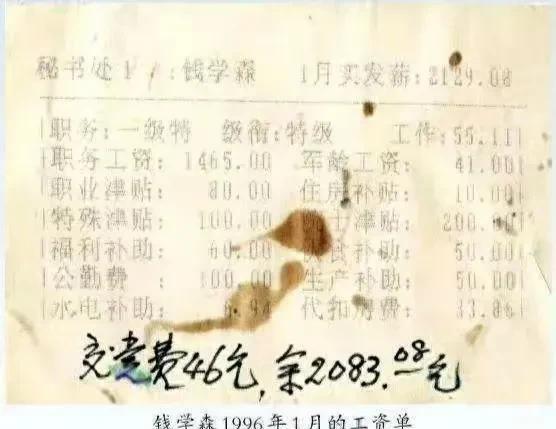 秘书处1 :钱学森 1月实发薪:2129.08
职务:一级特 级衔:特级 工作:55.11
职务工资: 1465.00 军龄工资: 41.00
职业津贴: 80.00 住房补贴: 10.00
特殊津贴: 100.00 士津贴: 200.00
福利补助: 60.00 食补助: 50.00
公勤费 : 100.00 生产补助: 50.00
水电补助: 6.94 代扣房费: 33.86
交党费46元,余2083.08元
钱学森1996年1月的工资单